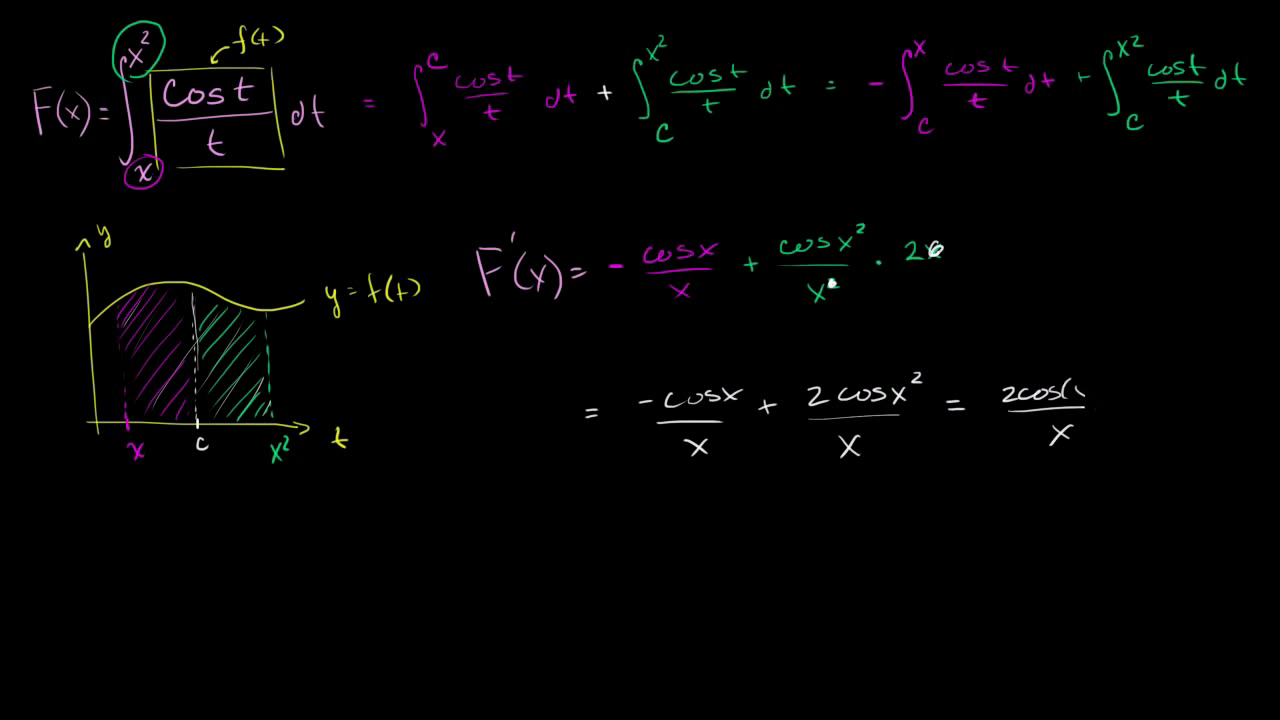 f(t)
F(x) = ∫_x^{x²} cos t / t dt = ∫_x^c cos t / t dt + ∫_c^{x²} cos t / t dt = - ∫_c^x cos t / t dt + ∫_c^{x²} cos t / t dt
y
y = f(t)
x c x² t
F'(x) = - cos x / x + cos x² / x² · 2x
= -cos x / x + 2 cos x² / x = 2cos( / x